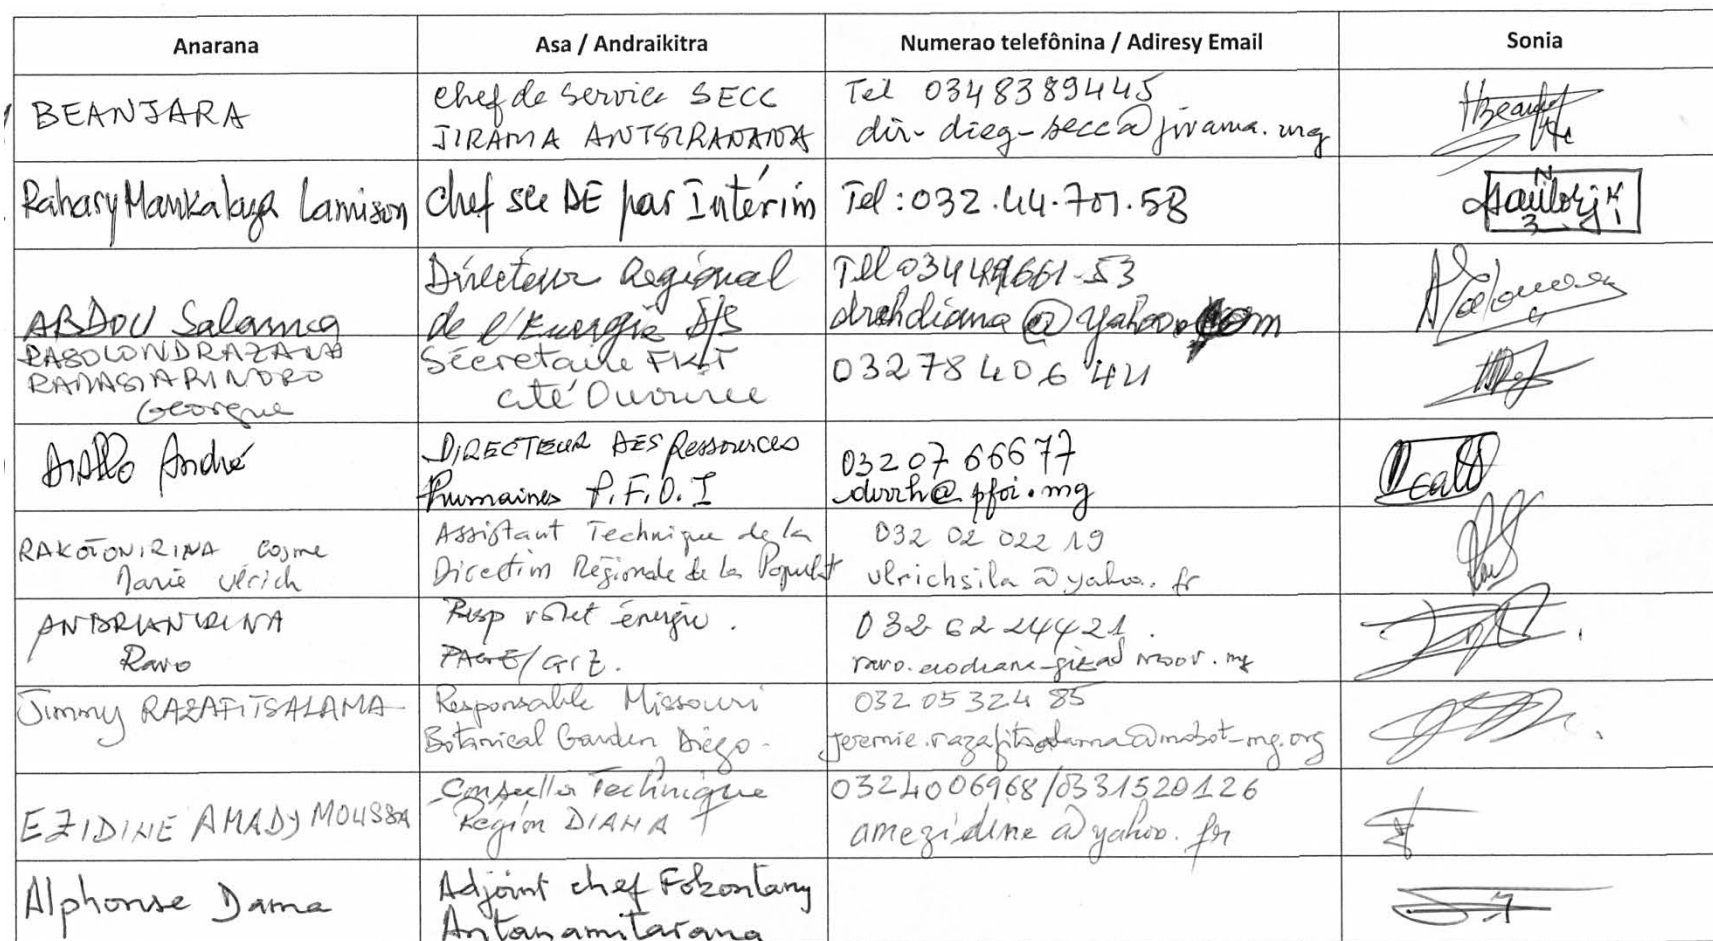 Anarana
Asa / Andraikitra
Numerao telefônina / Adiresy Email
Sonia
BEANJARA
chef de service SECC
JIRAMA ANTSIRANANA
Tel 0348389445
dir-dieg-secc@jirama.mg
Lamison
chef sce DE par Intérim
Tel : 032.44.701.58
ABDOU Salama
Directeur Regional
de l'Energie D/S
drehdiana@yahoo.com
RASOLONDRAZANA
Georgue
Secretaire FKT
cité Ouvriere
03278 406 44
Diallo André
DIRECTEUR DES Ressources
Humaines P.F.O.I
032 07 66677
durrh@pfoi.mg
RAKOTONIRINA Cosme
Marie Ulrich
Assistant Technique de la
Direction Régionale de la Populat
032 02 022 19
ulrichsila@yahoo.fr
ANDRIANIRINA
Ravo
Resp volet énergie.
PAGE/GIZ.
032 62 24421.
Jimmy RAZAFITSALAMA
Responsable Missouri
Botanical Garden Diego-
032 05 324 85
jeremie.razafitsalama@mobot-mg.org
EZIDINE AMADY MOUSSA
Conseiller Technique
Région DIANA
0324006968/0331520126
amezidine@yahoo.fr
Alphonse Dama
Adjoint chef Fokontany
Antanamitarana